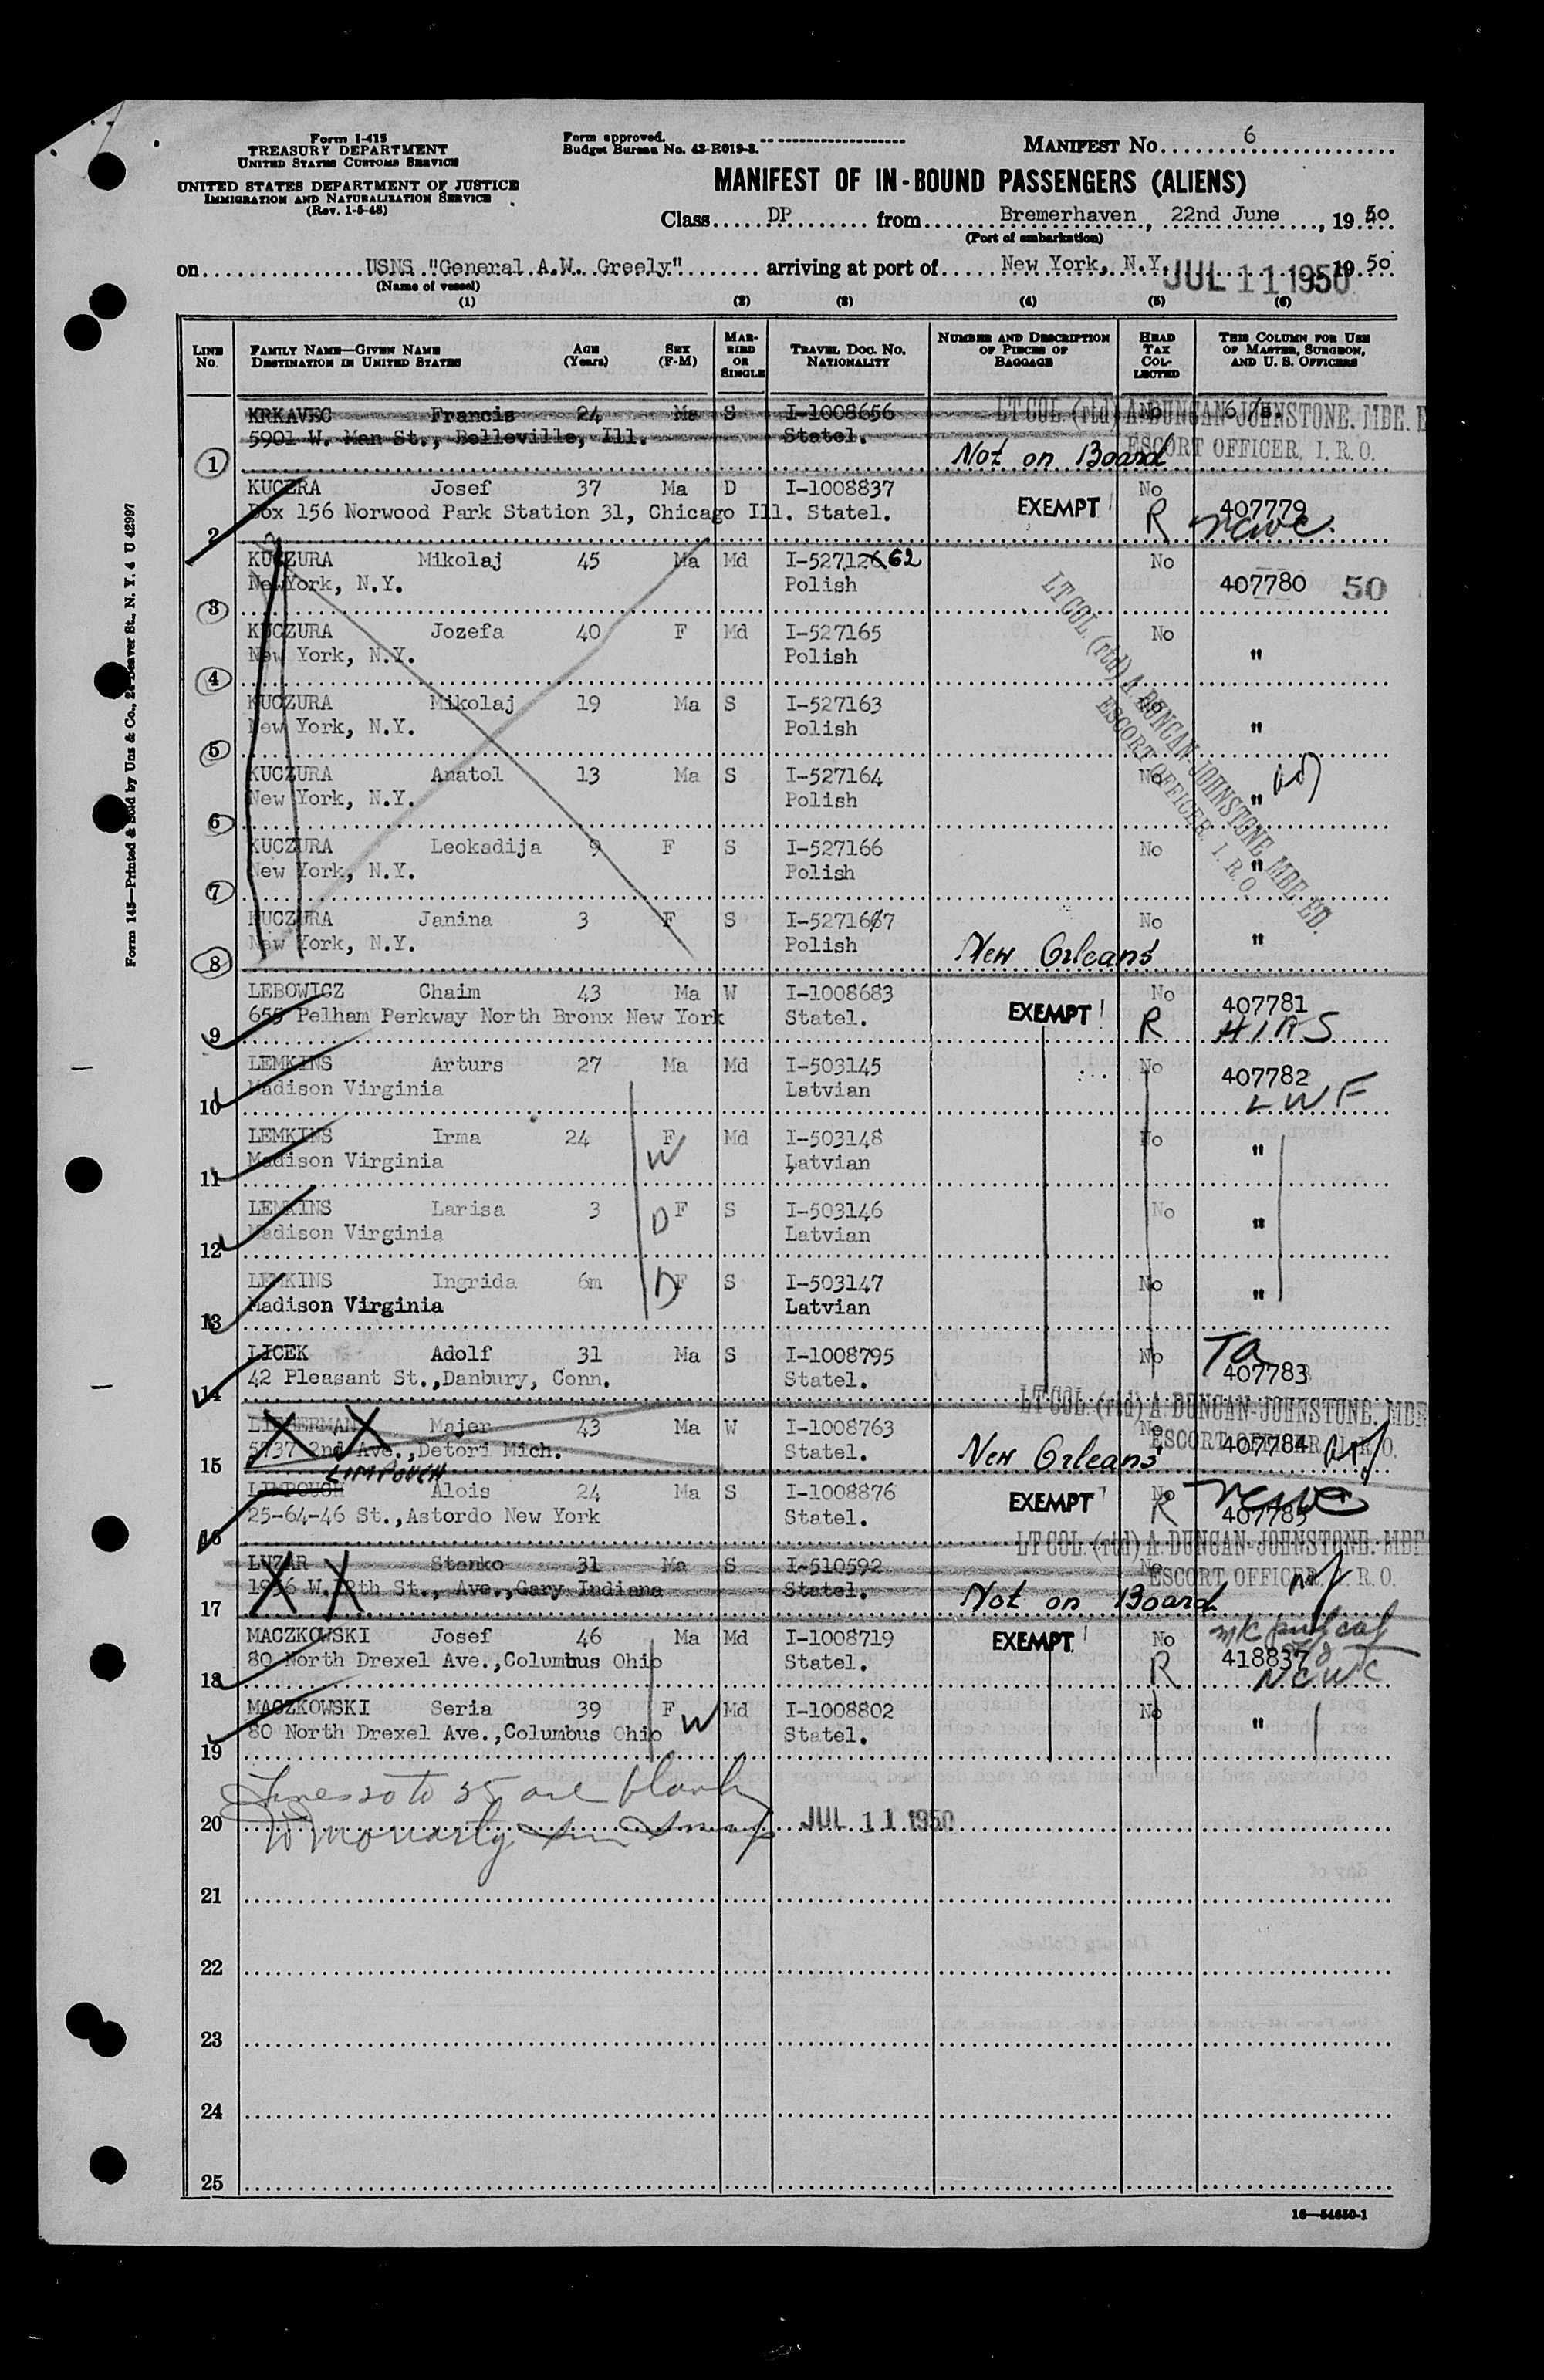 Form I-415
TREASURY DEPARTMENT
UNITED STATES CUSTOMS SERVICE
UNITED STATES DEPARTMENT OF JUSTICE
IMMIGRATION AND NATURALIZATION SERVICE
(Rev. 1-5-48)
Form approved.
Budget Bureau No. 43-R019-3.
MANIFEST No. 6
MANIFEST OF IN-BOUND PASSENGERS (ALIENS)
Class DP from Bremerhaven, 22nd June, 19 50
(Port of embarkation)
on USNS "General A.W. Greely" arriving at port of New York, N.Y. JUL 11 1950 19 50
(Name of vessel)
(1) (2) (3) (4) (5) (6)
LINE No.
FAMILY NAME—GIVEN NAME
DESTINATION IN UNITED STATES
AGE (Years)
SEX (F-M)
MARRIED OR SINGLE
TRAVEL DOC. NO. NATIONALITY
NUMBER AND DESCRIPTION OF PIECES OF BAGGAGE
HEAD TAX COLLECTED
THIS COLUMN FOR USE OF MASTER, SURGEON, AND U. S. OFFICERS
KRKAVEC Francis 24 Ma S I-1008656 No LT COL. (rtd) A. DUNCAN-JOHNSTONE. MBE. E
5901 W. Man St., Belleville, Ill. Statel. ESCORT OFFICER, I.R.O.
1 Not on Board
KUCERA Josef 37 Ma D I-1008837 No
Box 156 Norwood Park Station 31, Chicago Ill. Statel. EXEMPT R 407779
2 NCWC
KUCZURA Mikolaj 45 Ma Md I-527126 62 No
NewYork, N.Y. Polish 407780 50
3
KUCZURA Jozefa 40 F Md I-527165 No
New York, N.Y. Polish "
4
KUCZURA Mikolaj 19 Ma S I-527163 No
New York, N.Y. Polish "
5
KUCZURA Anatol 13 Ma S I-527164 No
New York, N.Y. Polish "
6
KUCZURA Leokadija 9 F S I-527166 No
New York, N.Y. Polish "
7
LT COL. (rtd) A. DUNCAN-JOHNSTONE MBE. ED.
ESCORT OFFICER, I.R.O.
KUCZURA Janina 3 F S I-5271667 No
New York, N.Y. Polish "
8 New Orleans
LEBOWICZ Chaim 43 Ma W I-1008683 No 407781
655 Pelham Perkway North Bronx New York Statel. EXEMPT R HIAS
9
LEMKINS Arturs 27 Ma Md I-503145 No 407782
Madison Virginia Latvian LWF
10
LEMKINS Irma 24 F W Md I-503148 No
Madison Virginia Latvian "
11
LEMKINS Larisa 3 D F S I-503146 No
Madison Virginia Latvian "
12
LEMKINS Ingrida 6m D F S I-503147 No
Madison Virginia Latvian "
13
LICEK Adolf 31 Ma S I-1008795 No
42 Pleasant St.,Danbury, Conn. Statel. 407783
14
LT COL. (rtd) A. DUNCAN-JOHNSTONE. MBE
Majer 43 Ma W I-1008763 No
5737 2nd Ave.,Detori Mich. Statel. ESCORT OFFICER, I.R.O. 407784
15 New Orleans
LIMPOUCH
LIMPOUCH Alois 24 Ma S I-1008876 EXEMPT No R NCWC
25-64-46 St.,Astordo New York Statel. 407785
16
LT COL. (rtd) A. DUNCAN-JOHNSTONE. MBE
LUZAR Stanko 31 Ma S I-510592 No
W. St., Ave.,Gary Indiana Statel. ESCORT OFFICER, I.R.O.
17 Not on Board
MACZKOWSKI Josef 46 Ma Md I-1008719 EXEMPT No
80 North Drexel Ave.,Columbus Ohio Statel. R 418837
18 NCWC
MACZKOWSKI Seria 39 F W Md I-1008802 No
80 North Drexel Ave.,Columbus Ohio Statel. "
19
Lines 20 to 25 are blank
20 JUL 11 1950
21
22
23
24
25
16—54650-1
Form 145—Printed & Sold by Unz & Co., 24 Beaver St., N. Y. 4 U 42997